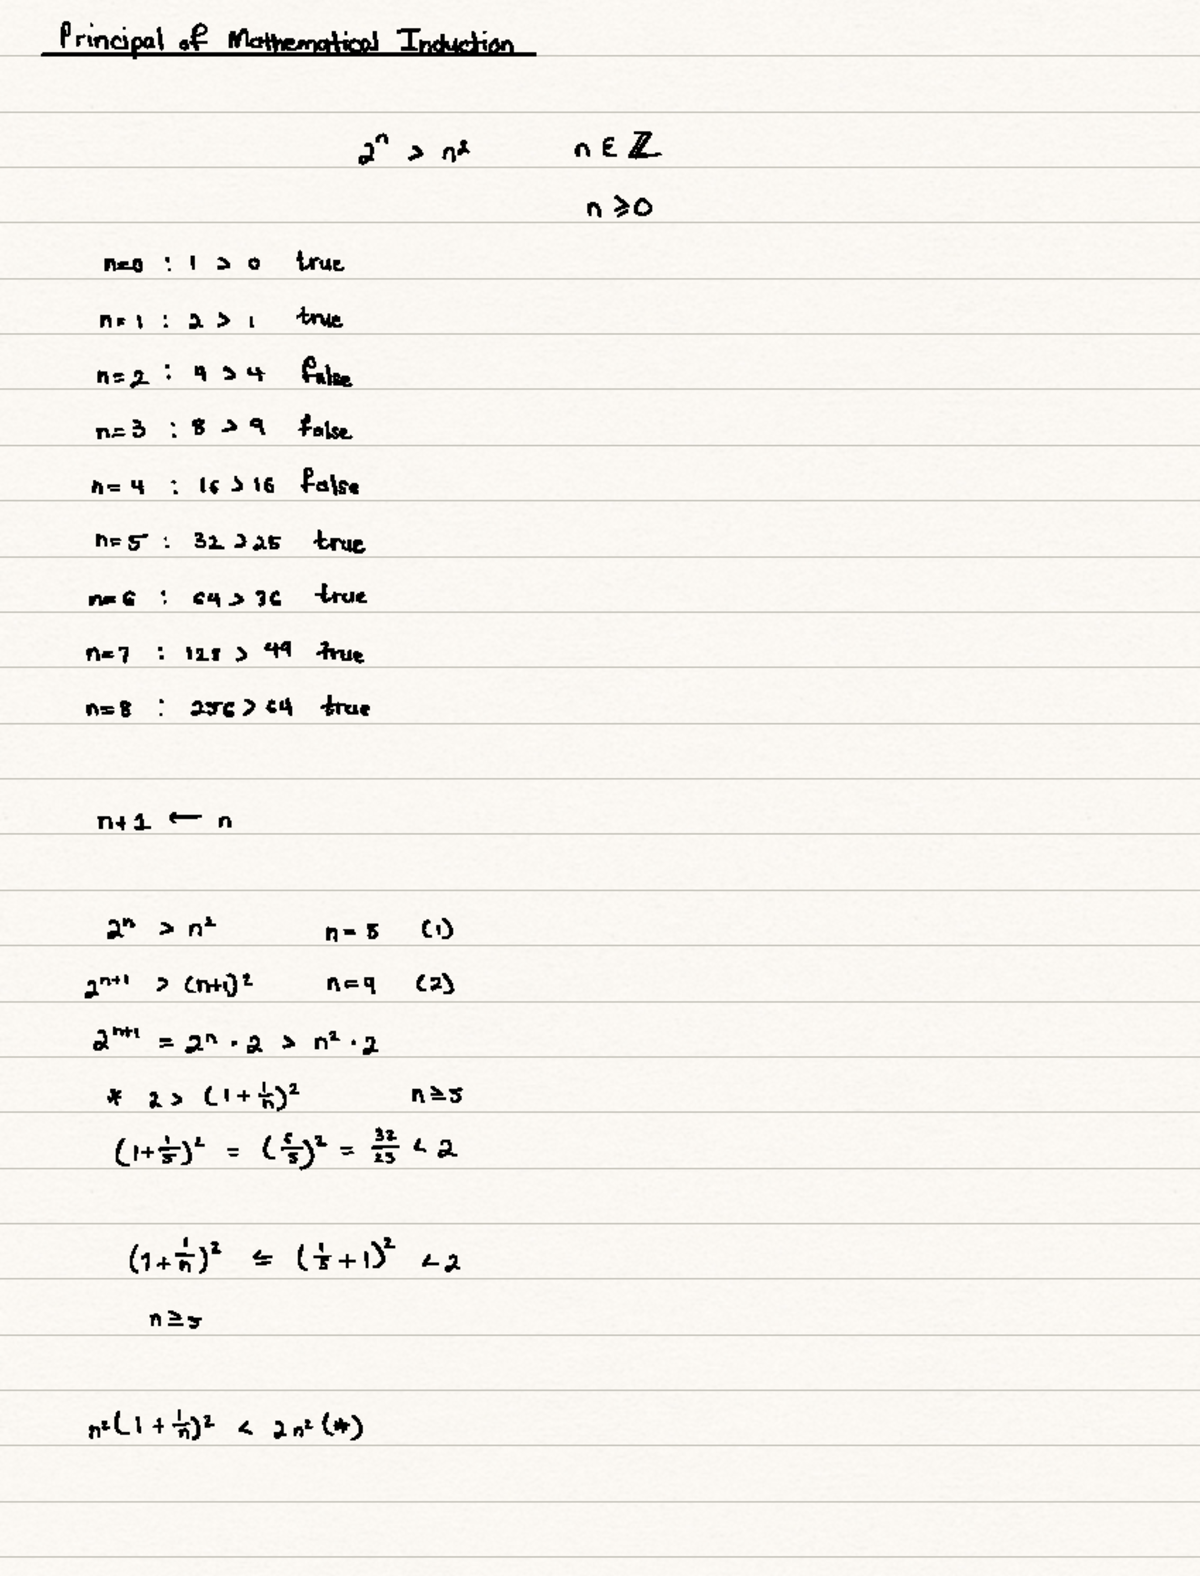 Principal of Mathematical Induction
2ⁿ > n² n ∈ ℤ
n ⩾ 0
n=0 : 1 > 0 true
n=1 : 2 > 1 true
n=2 : 4 > 4 false
n=3 : 8 > 9 false
n=4 : 16 > 16 false
n=5 : 32 > 25 true
n=6 : 64 > 36 true
n=7 : 128 > 49 true
n=8 : 256 > 64 true
n+1 ← n
2ⁿ > n² n=5 (1)
2ⁿ⁺¹ > (n+1)² n=9 (2)
2ⁿ⁺¹ = 2ⁿ · 2 > n² · 2
* 2 > (1 + 1/n)² n ≥ 5
(1 + 1/5)² = (6/5)² = 32/25 < 2
(1 + 1/n)² ≤ (1/5 + 1)² < 2
n ≥ 5
n²(1 + 1/n)² < 2n² (*)